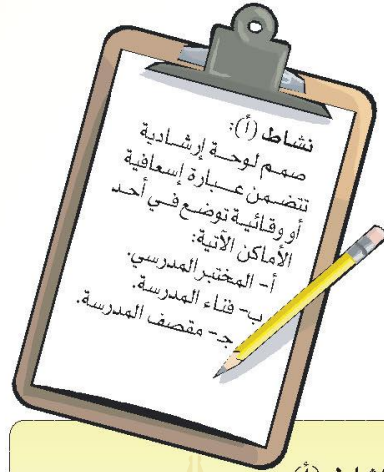 نشاط (أ):
صمم لوحة إرشادية
تتضمن عبارة إسعافية
أو وقائية توضع في أحد
الأماكن الآتية:
أ- المختبر المدرسي.
ب- فناء المدرسة.
ج- مقصف المدرسة.